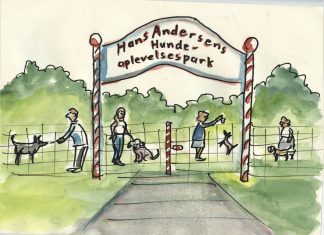 Hans Andersens
Hunde-
oplevelsespark